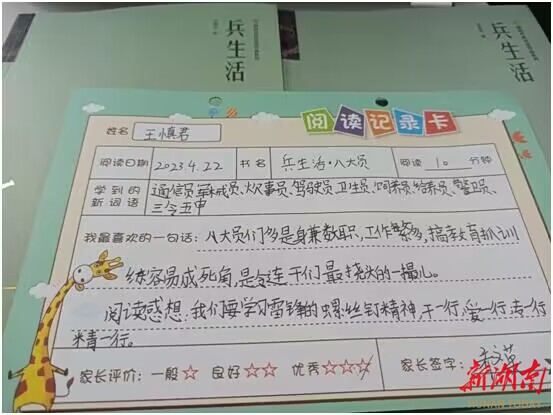 兵生活
兵生活
阅读记录卡
姓名 王慎君
阅读日期 2023.4.22 书名 兵生活·八大员 阅读 10 分钟
学到的新词语 通信员、军械员、炊事员、驾驶员、卫生员、饲养员、给养员、警卫员、
三令五申
我最喜欢的一句话：八大员们多是身兼数职，工作繁多，搞教育抓训
练容易成死角，是令连干们最挠头的一撮儿。
阅读感想：我们要学习雷锋的螺丝钉精神，干一行，爱一行，专一行
精一行。
家长评价：一般☆ 良好☆☆ 优秀☆☆☆ 家长签字：
新湖南
HUNAN TODAY